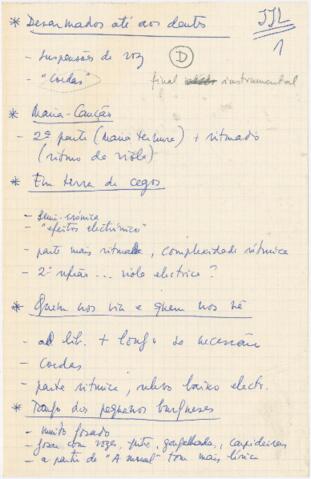 * Desarmados até aos dentes
JJL
1
- suspensões de voz
D
- "Cordas"
final instrumental
* Maria-Canção
- 2ª parte (Maria ternura) + ritmado
(ritmo de viola)
* Em terra de cegos
- semi-irónica
- "efeitos electrónicos"
- parte mais ritmada, complexidade rítmica
- 2º refrão... viola electrica?
* Quem nos viu e quem nos vê
- ad lib. + longo se necessário
- cordas
- parte ritmica, baixo electr.
* Tango dos pequenos burgueses
- muito gozado
- com vozes, gargalhadas, carpideiras
- a parte de "A moral" tom mais lírico